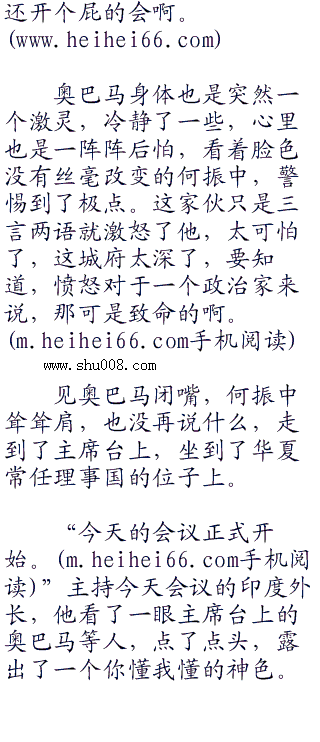 还开个屁的会啊。
(www.heihei66.com)
奥巴马身体也是突然一
个激灵，冷静了一些，心里
也是一阵阵后怕，看着脸色
没有丝毫改变的何振中，警
惕到了极点。这家伙只是三
言两语就激怒了他，太可怕
了，这城府太深了，要知
道，愤怒对于一个政治家来
说，那可是致命的啊。
(m.heihei66.com手机阅读)
www.shu008.com
见奥巴马闭嘴，何振中
耸耸肩，也没再说什么，走
到了主席台上，坐到了华夏
常任理事国的位子上。
“今天的会议正式开
始。(m.heihei66.com手机阅
读)”主持今天会议的印度外
长，他看了一眼主席台上的
奥巴马等人，点了点头，露
出了一个你懂我懂的神色。